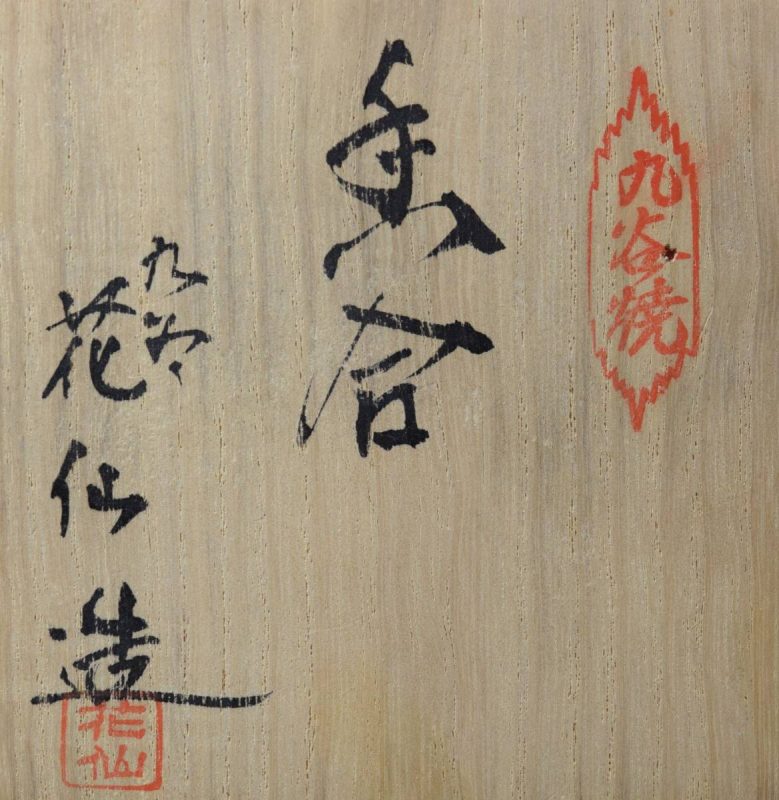 九谷焼
香合
九谷
花仙造
花仙